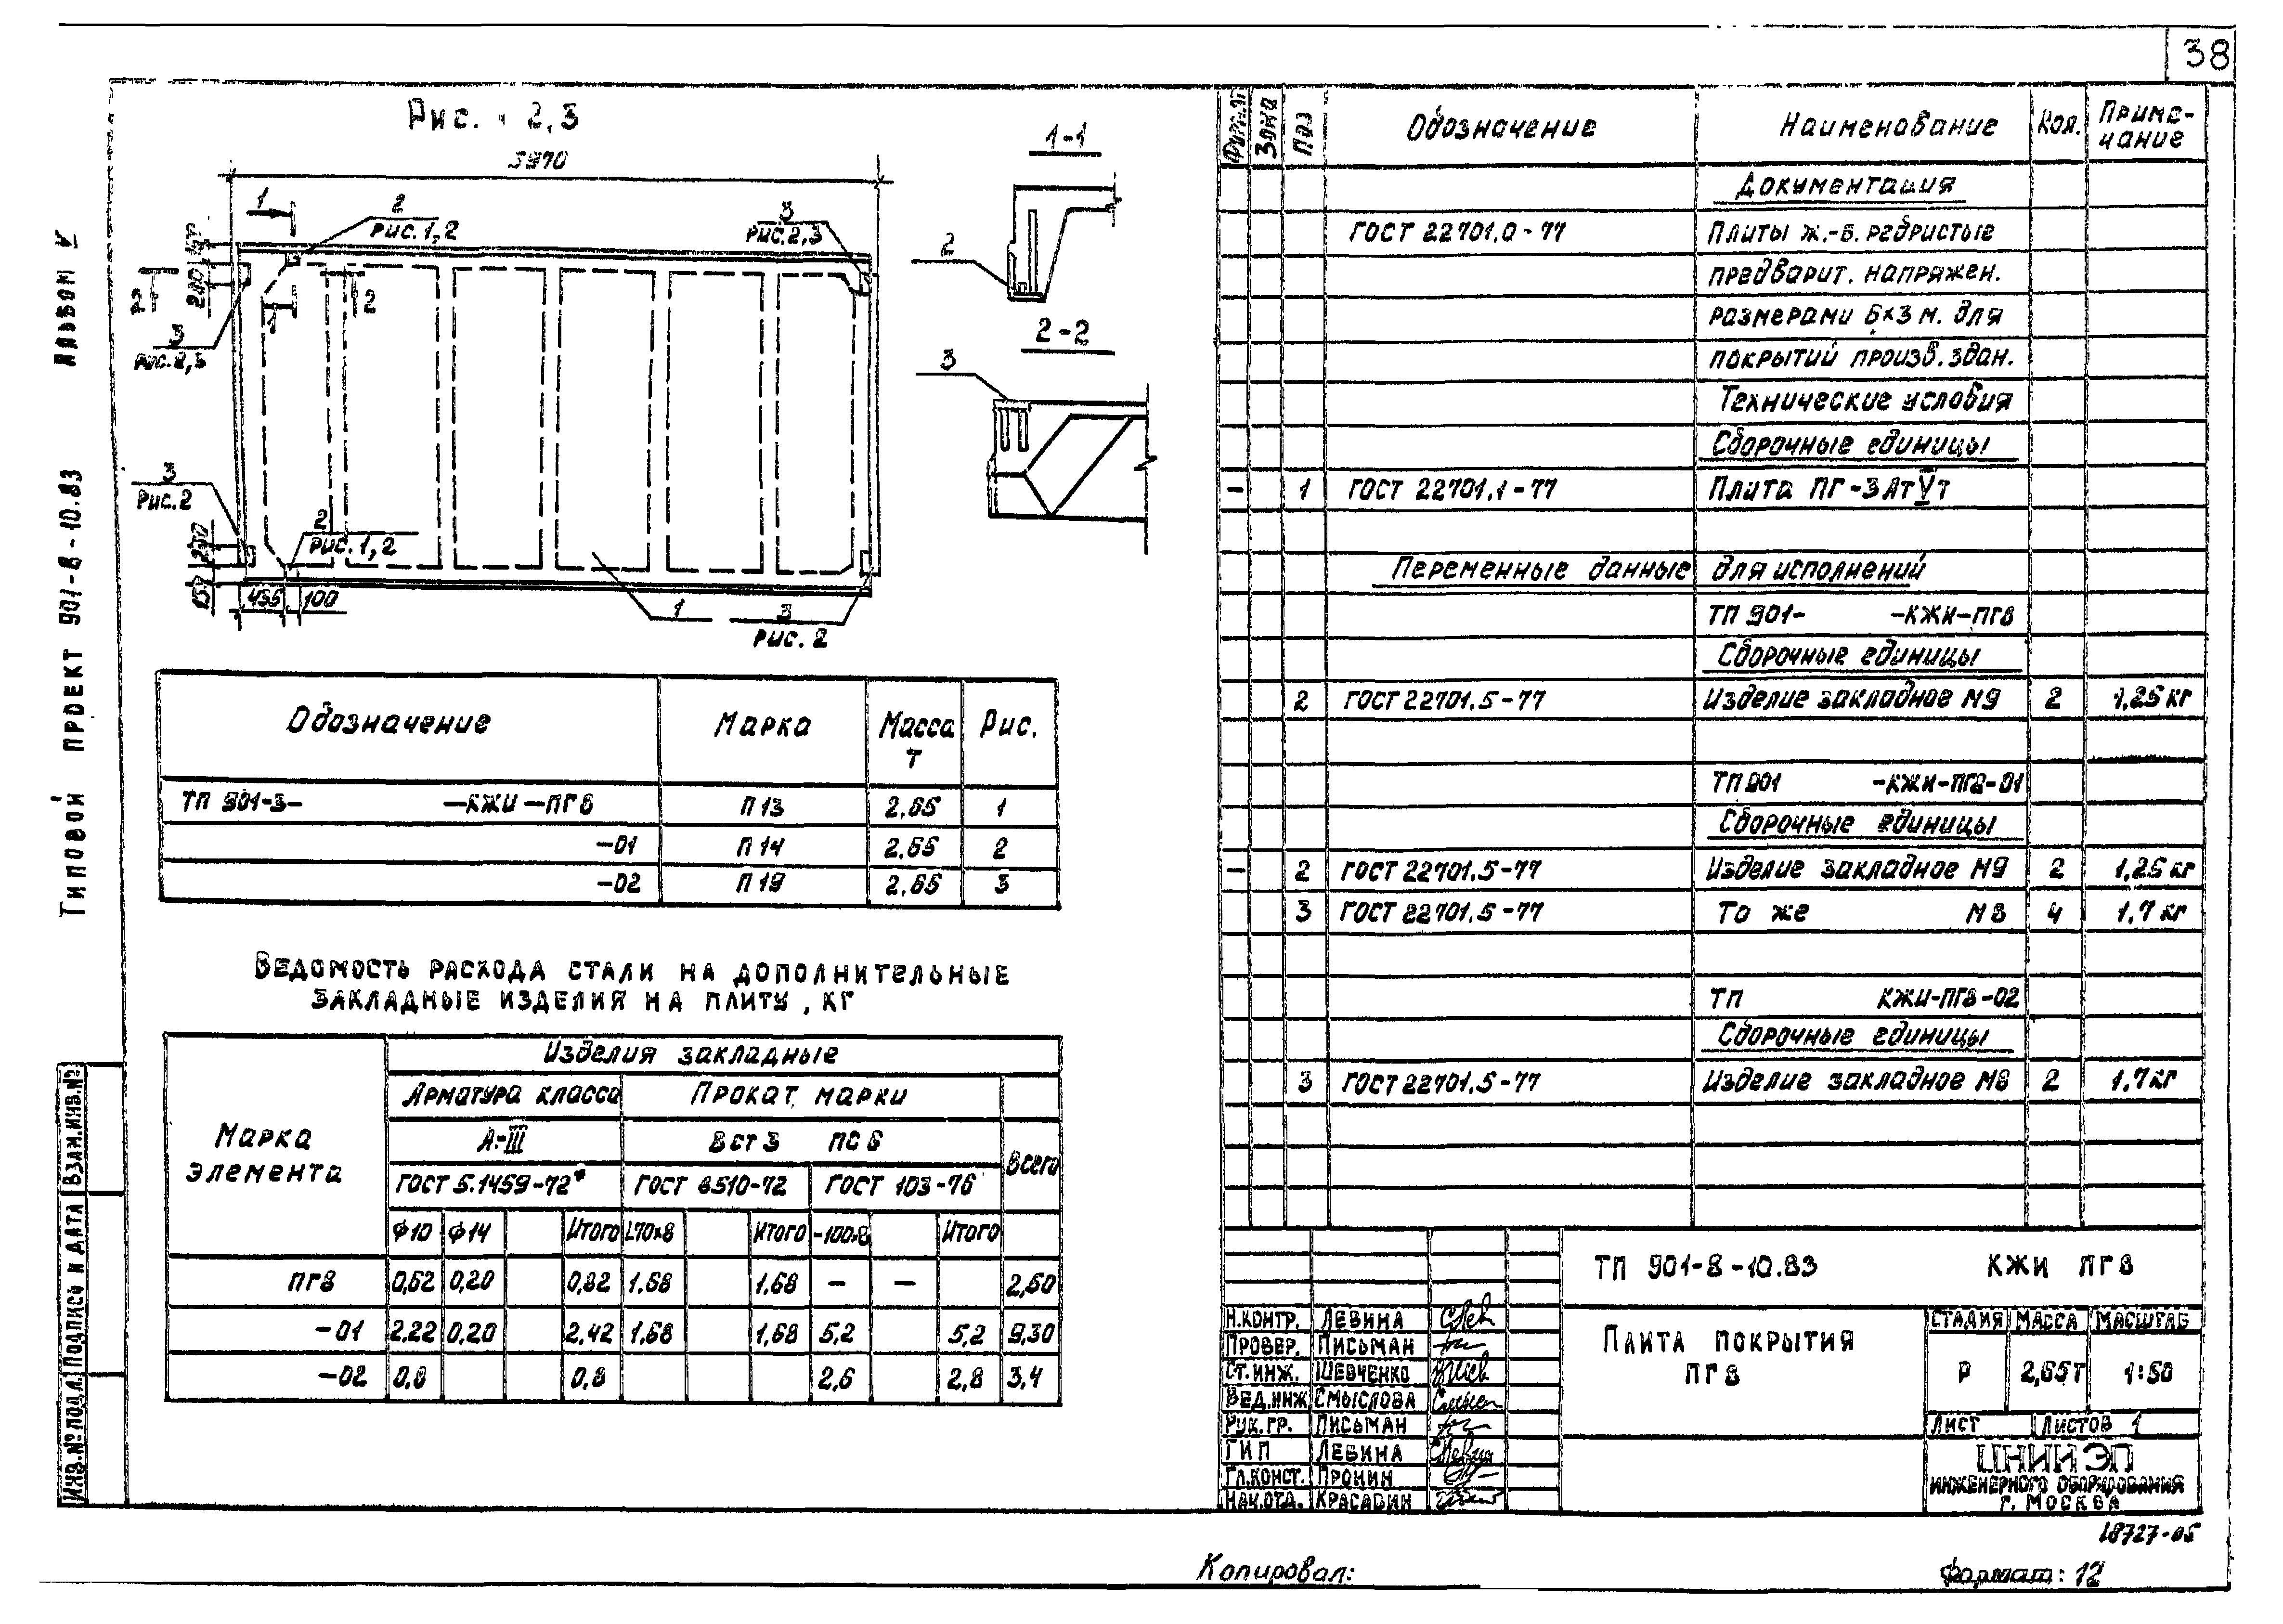 38
Альбом V
Типовой проект 901-8-10.83
Взам.инв.№
Подпись и дата
Инв.№ подл.
Рис. 1 2,3
3970
1
2
Рис.1,2
3
Рис.2,3
200
2
2
1
3
Рис.2,3
3
Рис.2
2
Рис.1,2
200
155
435
100
1
3
Рис. 2
1-1
2
2-2
3
Обозначение Марка Масса Рис.
т
ТП 901-3- -КЖИ-ПГ8 П13 2,65 1
-01 П14 2,65 2
-02 П19 2,65 3
Ведомость расхода стали на дополнительные
закладные изделия на плиту, кг
Марка элемента
Изделия закладные
Арматура класса Прокат марки
А-III Вст3 пс6 Всего
ГОСТ 5.1459-72* ГОСТ 8510-72 ГОСТ 103-76
Ф10 Ф14 Итого L70х8 Итого -100х8 Итого
ПГ8 0,62 0,20 0,82 1,68 1,68 – – 2,50
-01 2,22 0,20 2,42 1,68 1,68 5,2 5,2 9,30
-02 0,8 0,8 2,6 2,8 3,4
Формат Зона Поз Обозначение Наименование Кол. Приме-
чание
Документация
ГОСТ 22701.0-77 Плиты ж.-б. ребристые
предварит. напряжен.
размерами 6х3 м. для
покрытий произв. здан.
Технические условия
Сборочные единицы
– 1 ГОСТ 22701.1-77 Плита ПГ-3АтVт
Переменные данные для исполнений
ТП 901- -КЖИ-ПГ8
Сборочные единицы
2 ГОСТ 22701.5-77 Изделие закладное М9 2 1,25 кг
ТП 901 -КЖИ-ПГ8-01
Сборочные единицы
– 2 ГОСТ 22701.5-77 Изделие закладное М9 2 1,25 кг
3 ГОСТ 22701.5-77 То же М8 4 1,7 кг
ТП КЖИ-ПГ8-02
Сборочные единицы
3 ГОСТ 22701.5-77 Изделие закладное М8 2 1,7 кг
ТП 901-8-10.83 КЖИ ПГ8
Н.контр. Левина
Провер. Письман
Ст.инж. Шевченко
Вед.инж Смыслова
Рук.гр. Письман
ГИП Левина
Гл.конст. Пронин
Нач.отд. Красавин
Плита покрытия
ПГ8
Стадия Масса Масштаб
Р 2,65т 1:50
Лист Листов 1
ЦНИИЭП
инженерного оборудования
г. Москва
18727-05
Копировал:
Формат: 12